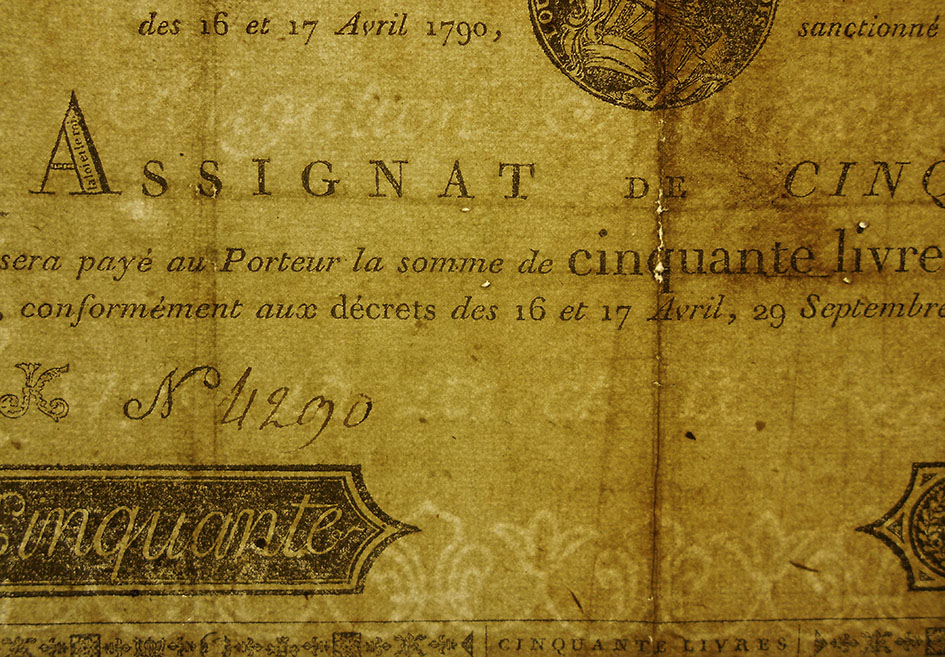 des 16 et 17 Avril 1790,
sanctionné
ASSIGNAT DE CINQ
sera payé au Porteur la somme de cinquante livre
, conſormément aux décrets des 16 et 17 Avril, 29 Septembre
K N 4290
Cinquante
CINQUANTE LIVRES